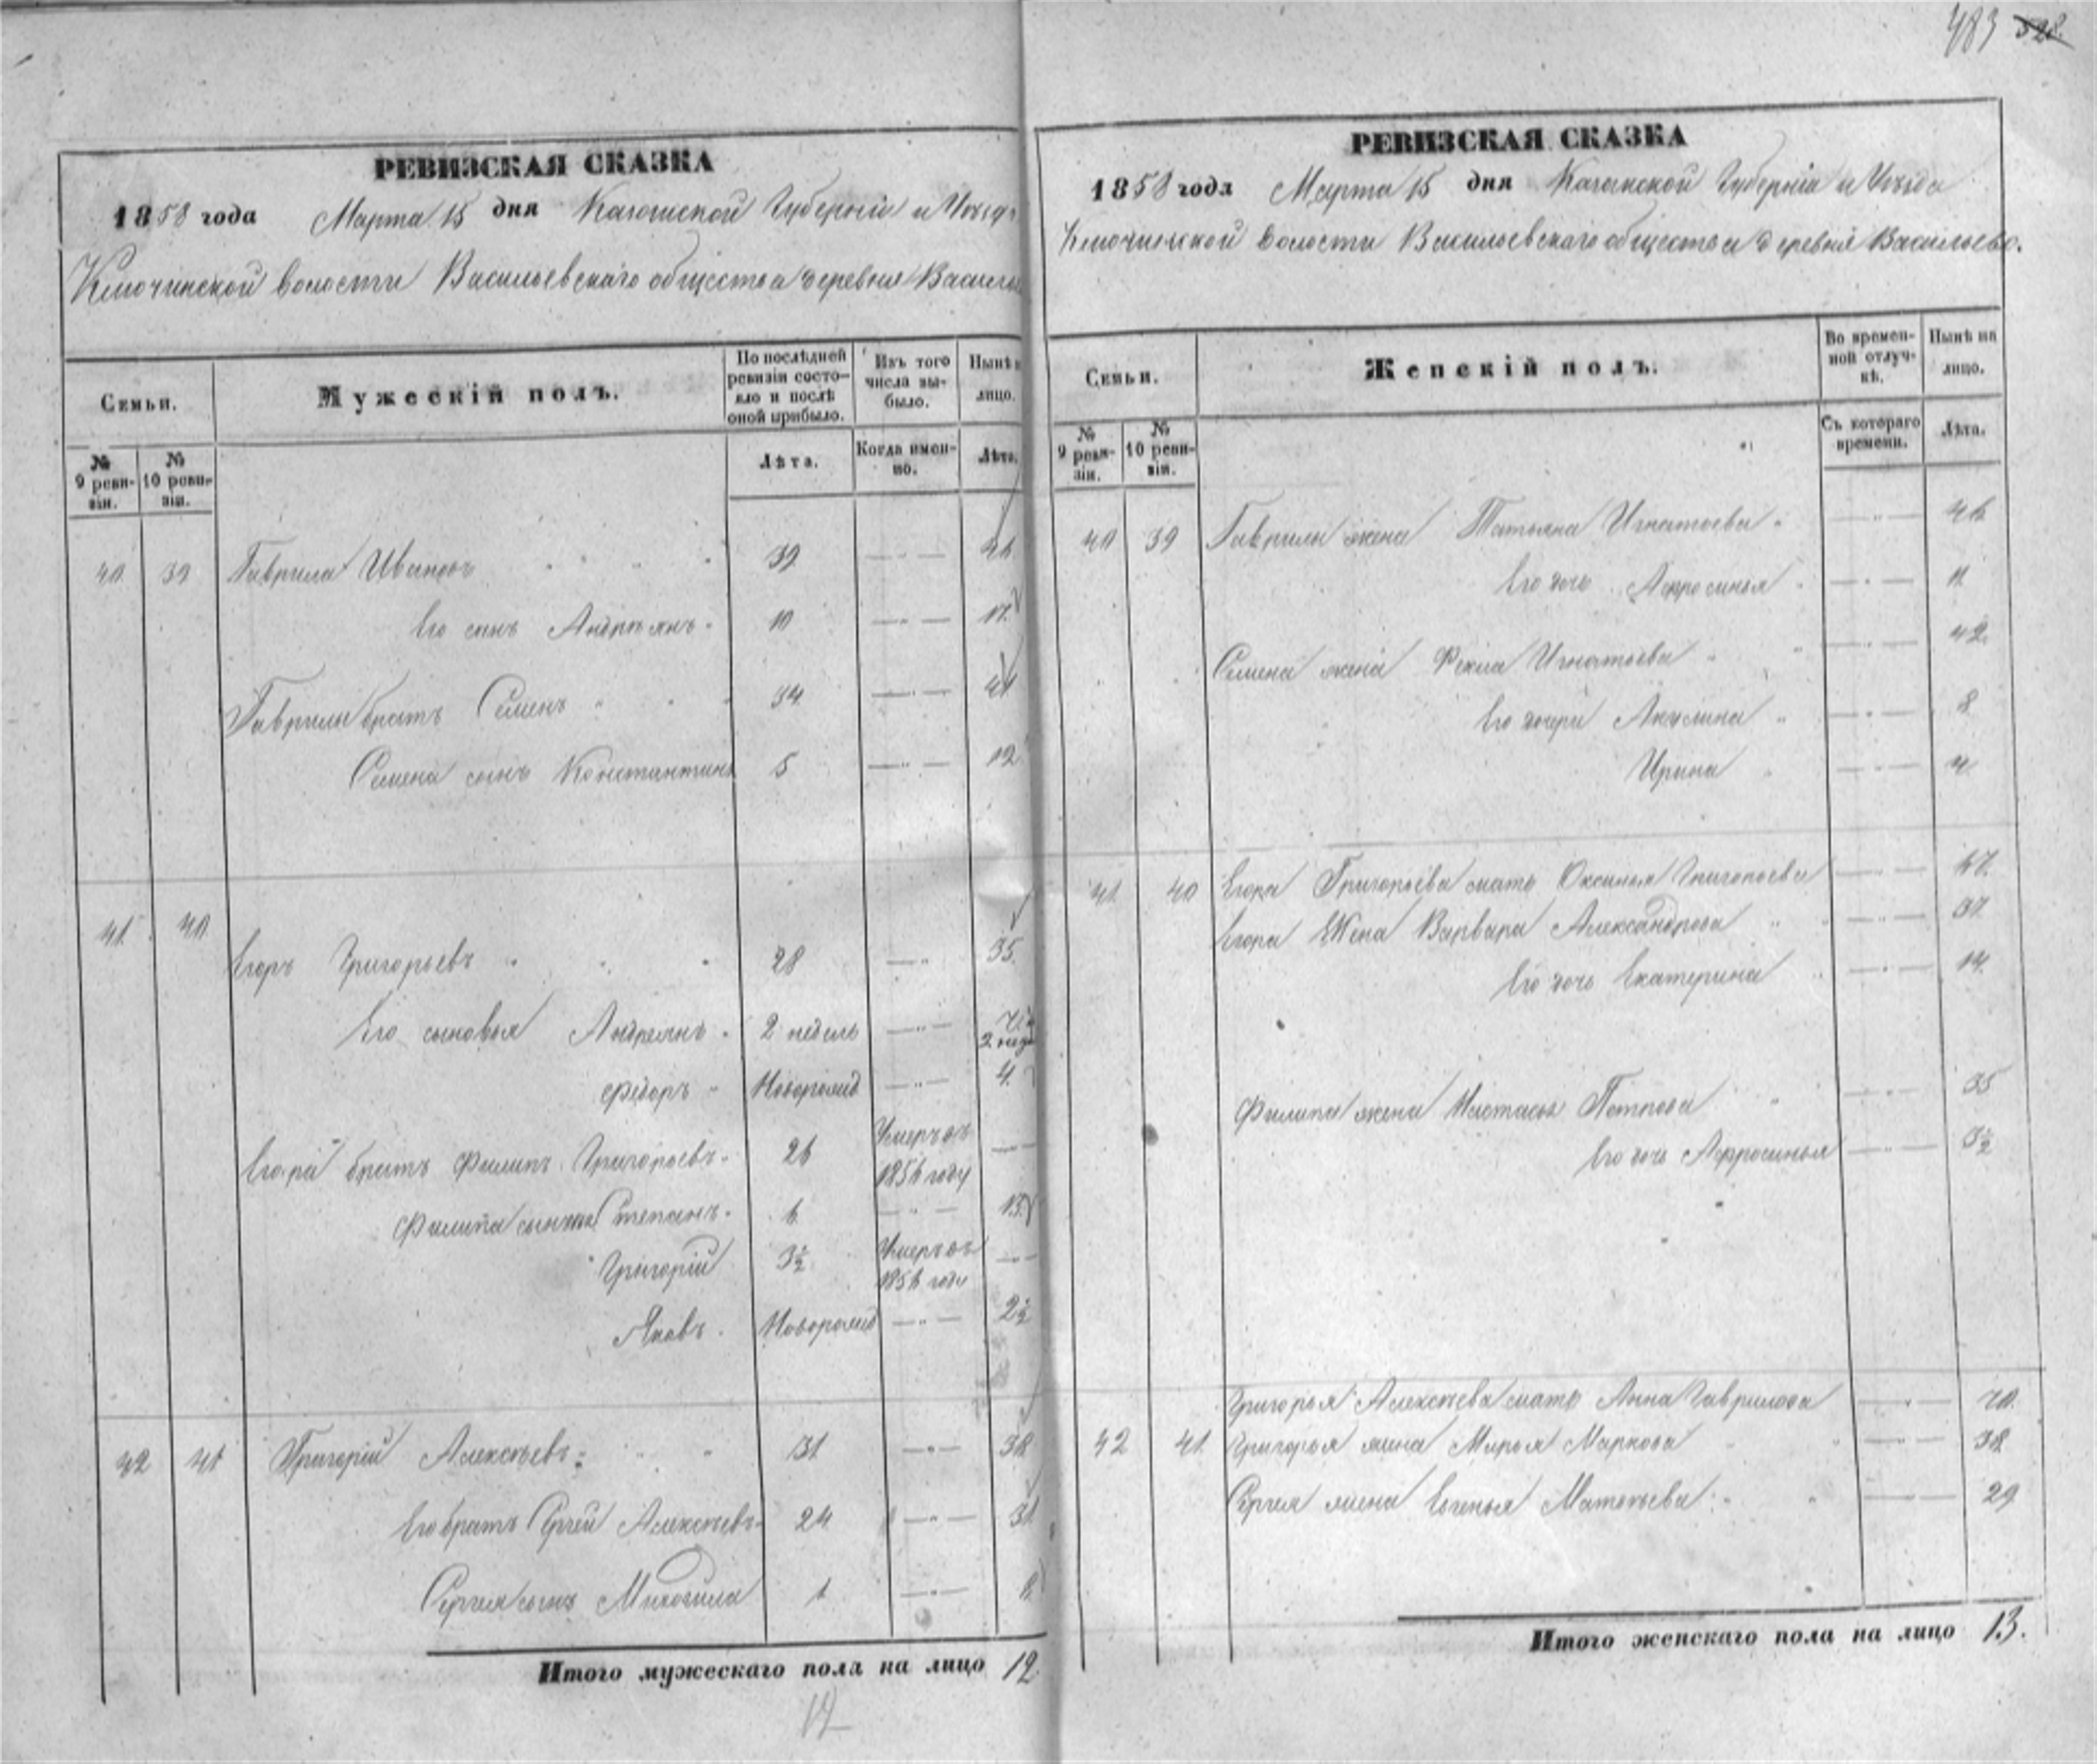 483 528.
РЕВИЗСКАЯ СКАЗКА
1858 года Марта 15 дня Казанской Губернии и Уѣзда
Ключинской волости Васильевскаго общества деревня
Семьи. Мужескій полъ. По послѣдней ревизіи состояло и послѣ оной прибыло. Изъ того числа выбыло. Нынѣ лицо.
№ 9 ревизіи. № 10 ревизіи. Лѣта. Когда именно. Лѣта.
40 39 Гаврила Ивановъ 39 46
Его сынъ Андреянъ 10 17
Гаврилы братъ Семенъ 34 41
Семена сынъ Константинъ 5 12
41 40 Егоръ Григорьевъ 28 35
Его сыновья Андреянъ 2 недель 7 2 нед
Федоръ Новорожд 4
Егора братъ Филипъ Григорьевъ 26 Умеръ въ 1856 году
Филипа сынъ Степанъ 6 13
Григорій 3½ Умеръ въ 1856 году
Яковъ Новорожд 2½
42 41 Григорій Алексѣевъ 31 38
Его братъ Сергей Алексѣевъ 24 31
Сергея сынъ Михаила 1 8
Итого мужескаго пола на лицо 12
12
РЕВИЗСКАЯ СКАЗКА
1858 года Марта 15 дня Казанской Губерніи и Уѣзда
Ключинской волости Васильевскаго общества деревня Васильево.
Семьи. Женскій полъ. Во временной отлучкѣ. Нынѣ на лицо.
№ 9 ревизіи. № 10 ревизіи. Съ котораго времени. Лѣта.
40 39 Гаврилы жена Татьяна Игнатьева 46
Его дочь Афросинья 11
Семена жена Фекла Игнатьева 42
Его дочери Акулина 8
Ирина 4
41 40 Егора Григорьева мать Оксинья Григорьева 47
Егора Жена Варвара Александрова 37
Его дочь Екатерина 14
Филипа жена Настасья Петрова 35
Его дочь Афросинья 3½
Григорья Алексѣева мать Анна Гаврилова 70
42 41 Григорья жена Марья Маркова 38
Сергея жена Евгенья Матвѣева 29
Итого женскаго пола на лицо 13.